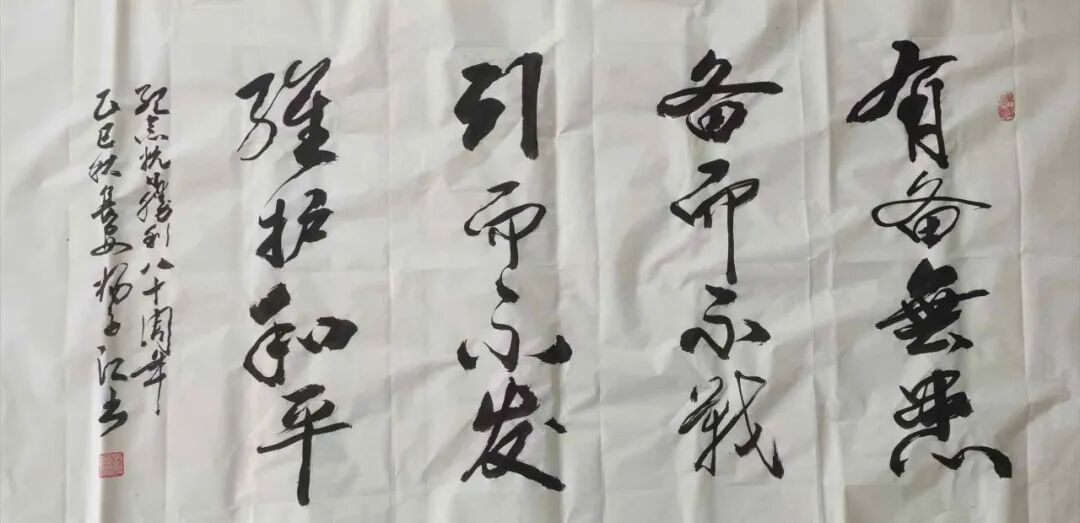 有备無患
备而不戰
引而不发
維护和平
纪念抗战勝利八十周年
乙巳秋 杨子江书